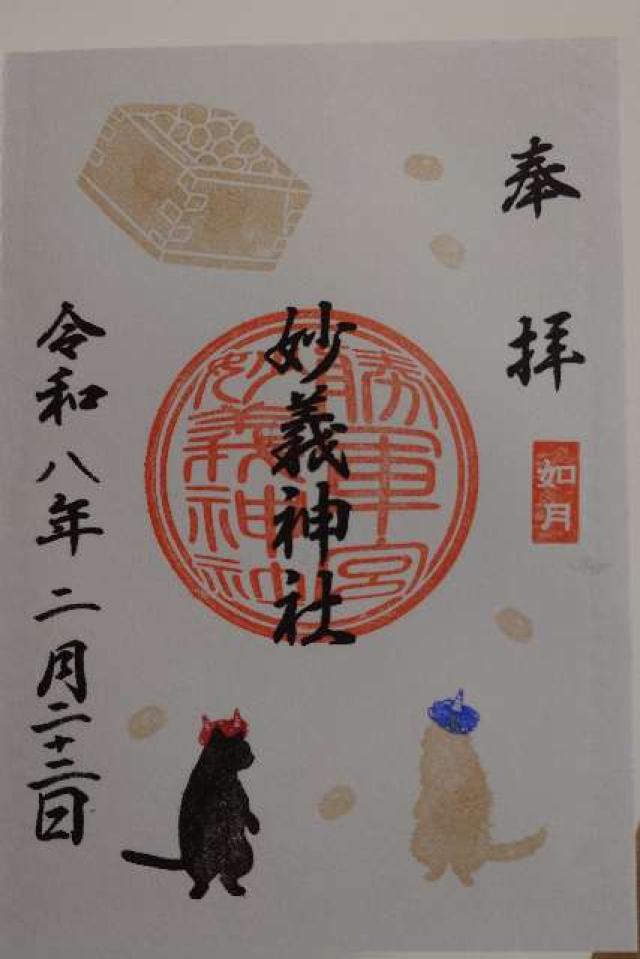 奉拝
如月
妙義神社
勝軍宮
妙義神社
令和八年二月二十二日